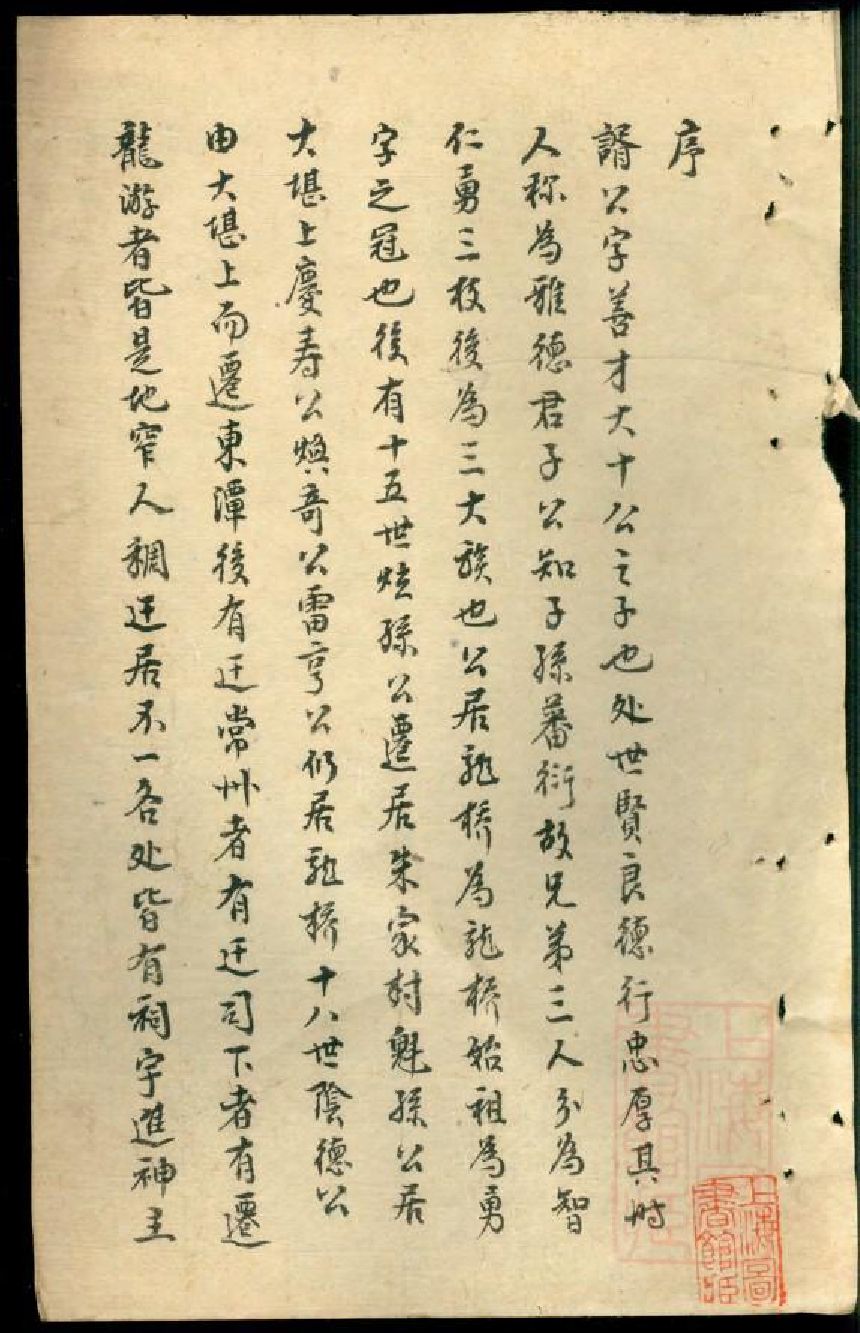 序
諝公字善才大十公之子也处世賢良德行忠厚其时
人称為雅德君子公知子孫蕃衍故兄弟三人分為智
仁勇三枝後為三大族也公居龍桥為龍桥始祖為勇
字之冠也後有十五世炷孫公遷居朱家村魁孫公居
大堪上慶寿公焕奇公雷亨公仍居龍桥十八世陰德公
由大堪上而遷東潭後有迁常州者有迁司下者有遷
龍游者皆是地窄人稠迁居不一各处皆有祠宇進神主
上海图書館藏